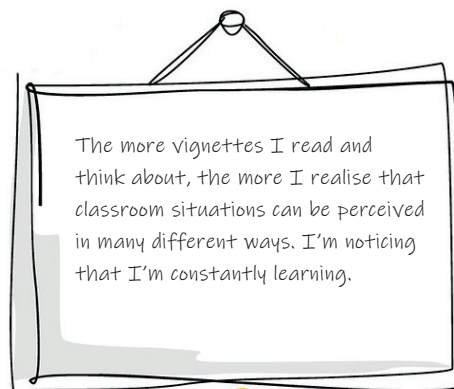 The more vignettes I read and
think about, the more I realise that
classroom situations can be perceived
in many different ways. I'm noticing
that I'm constantly learning.